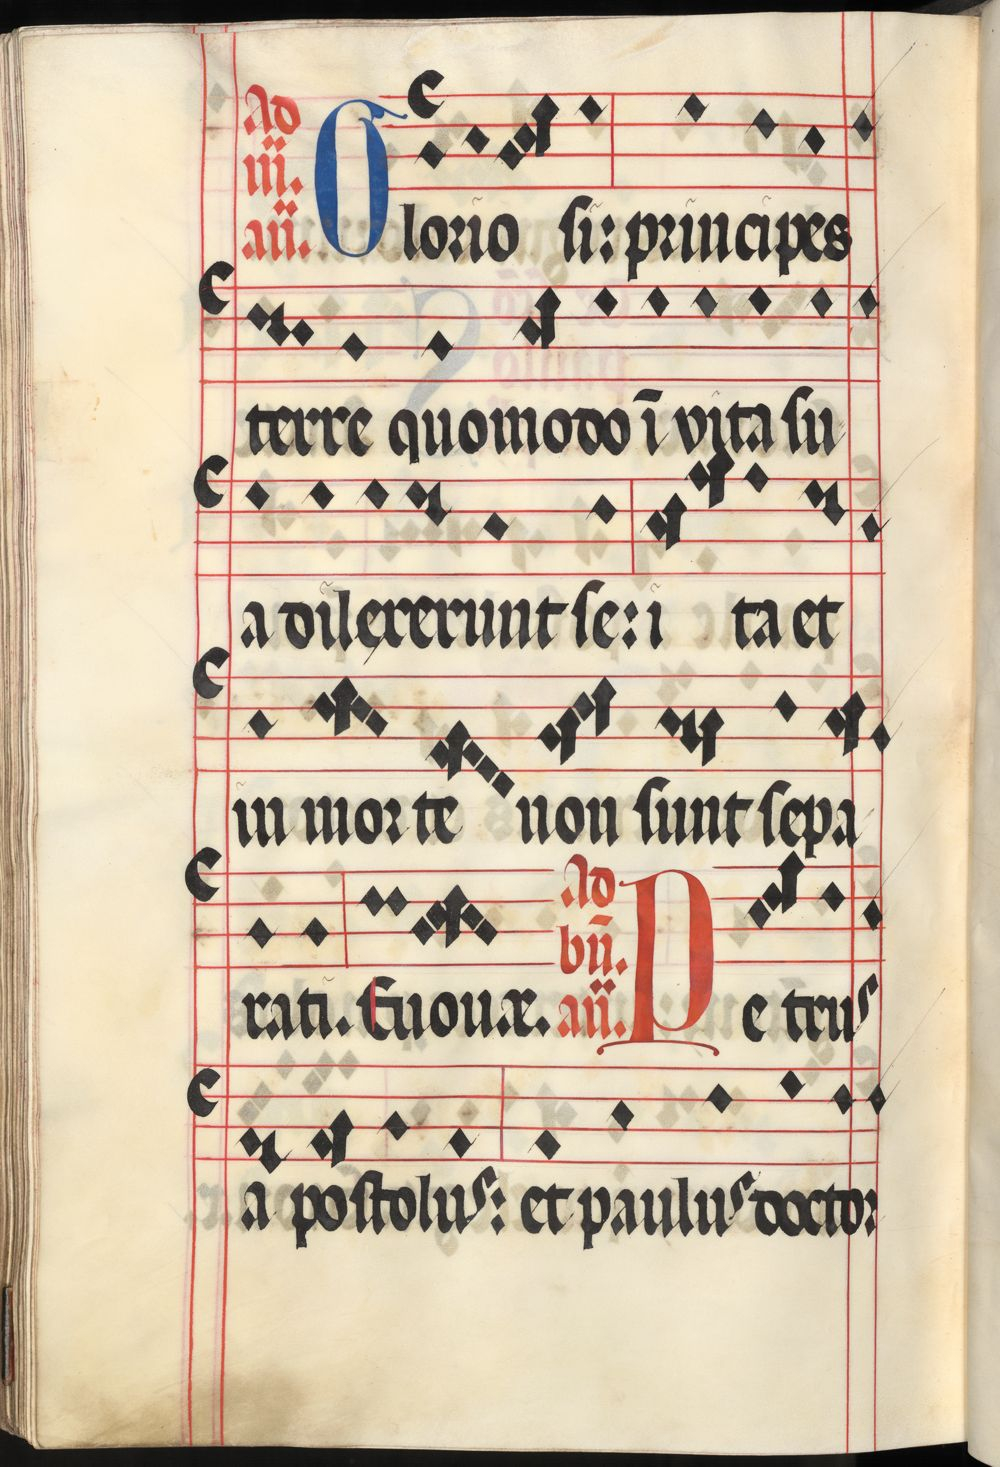 Ad
iii.
añ. Glorio si: principes
terre quomodo ī vita su
a dilexerunt se: i ta et
in mor te non sunt sepa
rati. Euouae. Ad bñ. añ. Pe trus
a postolus: et paulus doctor